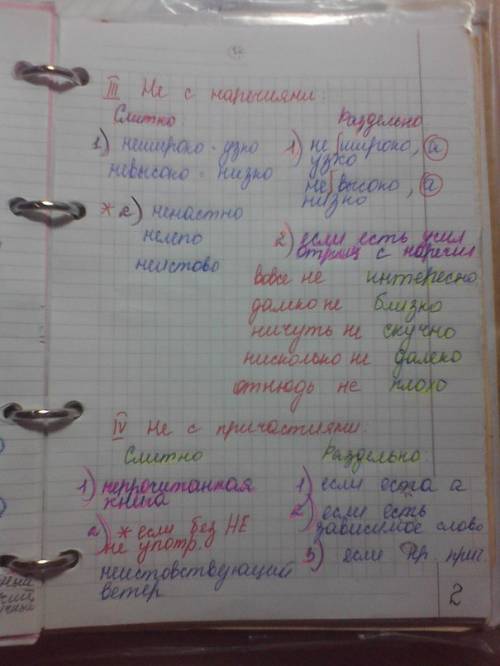 III Не с наречиями:
Слитно:
Раздельно
1) нешироко - узко
невысоко - низко
1) не широко, а
узко
не высоко, а
низко
* 2) ненастно
нелепо
неистово
2) если есть усил
отриц с наречия
вовсе не интересно
далеко не близко
ничуть не скучно
нисколько не далеко
отнюдь не плохо
IV Не с причастиями:
Слитно
Раздельно:
1) непрочитанная
книга
2) * если без НЕ
не употр.
неистовствующий
ветер
1) если есть а
2) если есть
зависимое слово
3) если кр прич.
2